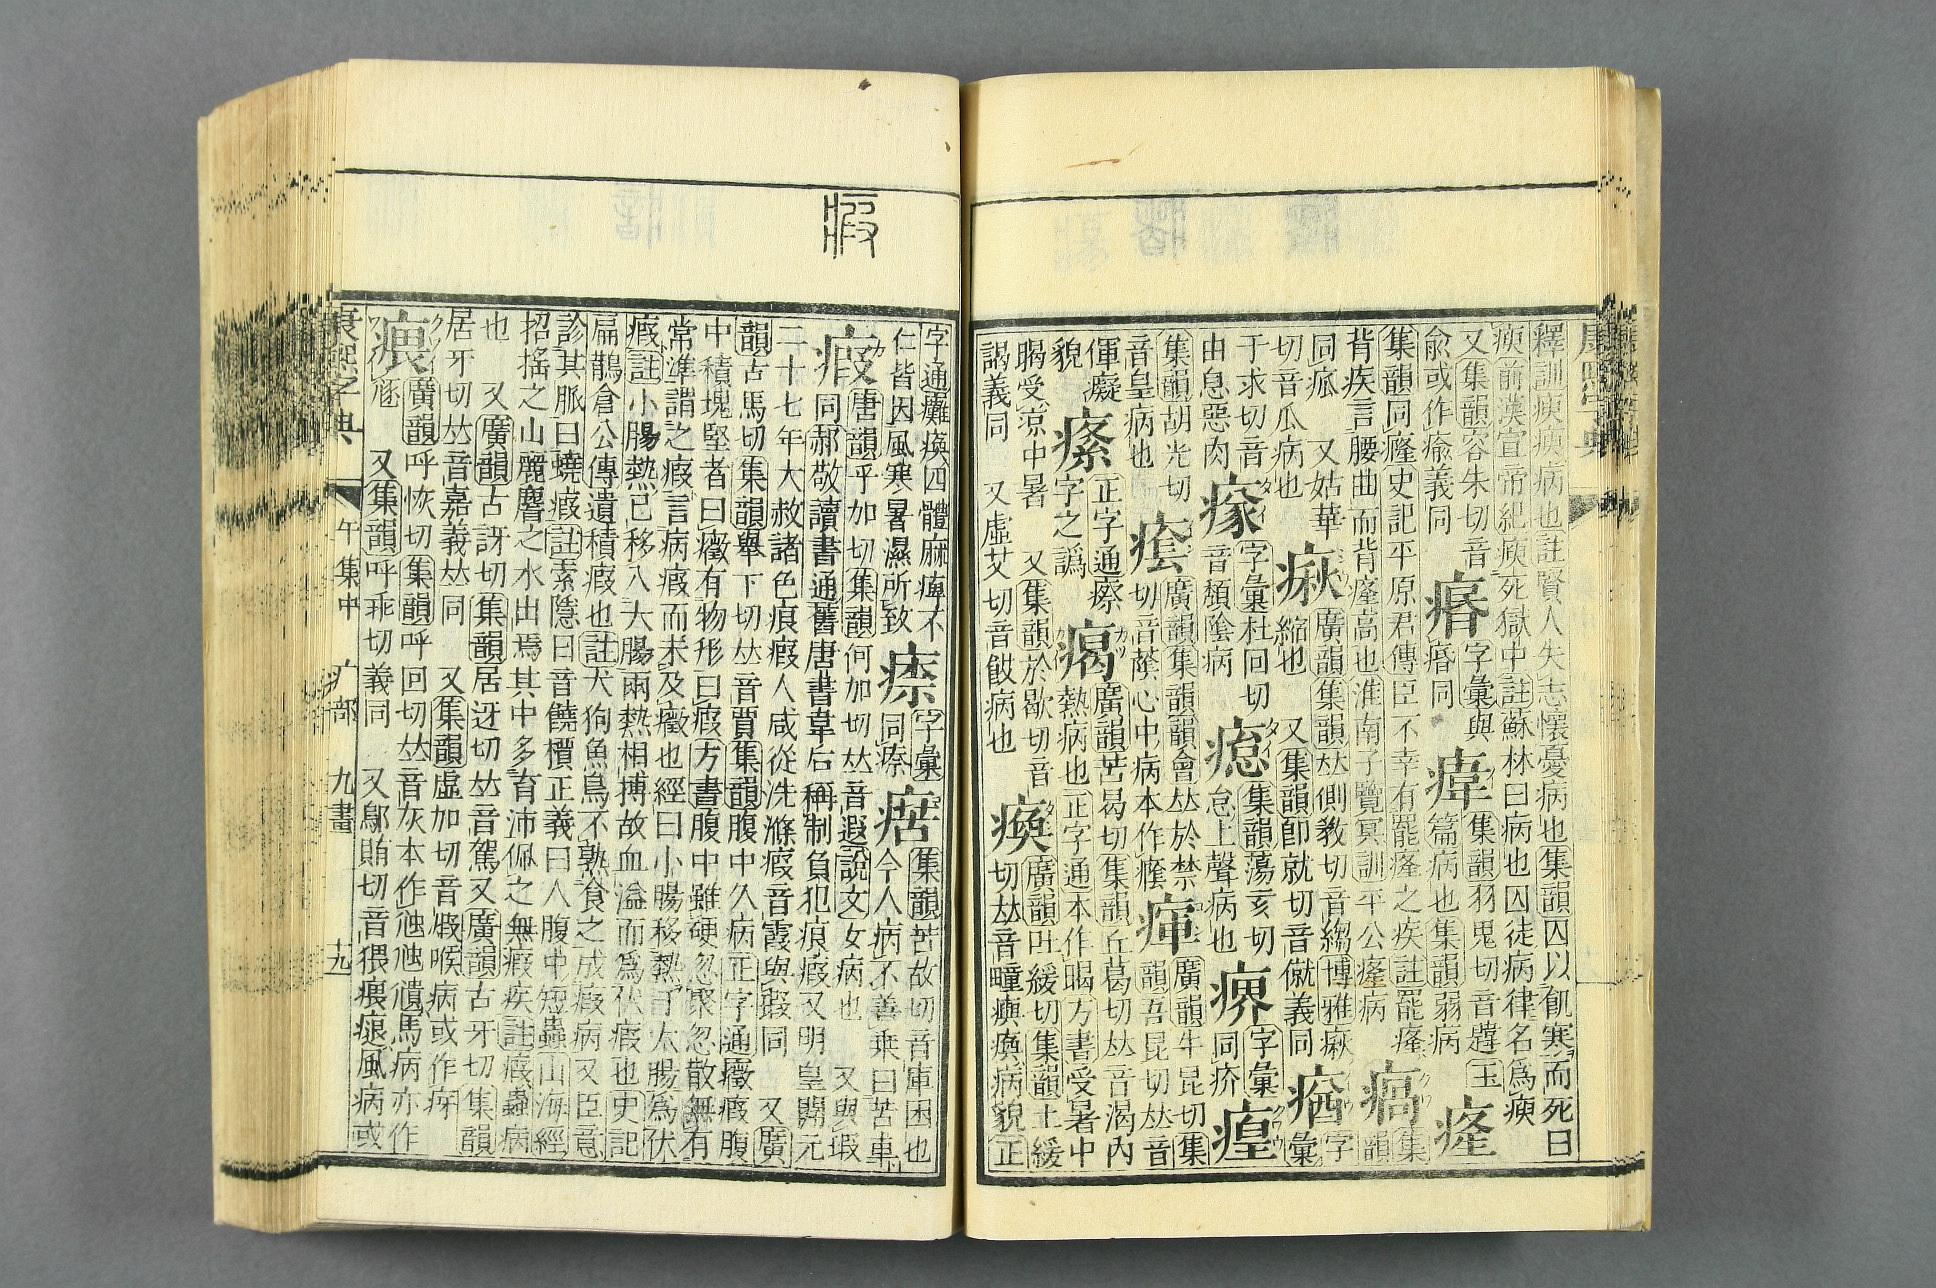 康熙字典
釋訓瘐瘐病也註賢人失志懷憂病也集韻囚以飢寒而死曰
瘐前漢宣帝紀瘐死獄中註蘇林曰病也囚徒病律名爲瘐
又集韻容朱切音
兪或作瘉義同
字彙與
同
集韻羽鬼切音韙玉
篇病也集韻弱病
集韻同癃史記平原君傳臣不幸有罷癃之疾註罷癃
背疾言腰曲而背癃高也淮南子覽冥訓平公癃病
瘑
集韻
同㼌 又姑華
切音瓜病也
廣韻集韻𠀤側敎切音縐博雅
縮也 又集韻卽就切音僦義同
字彙
于求切音
由息惡肉
字彙杜回切
音頹陰病
集韻蕩亥切
怠上聲病也
字彙
同疥
集韻胡光切
音皇病也
廣韻集韻韻會𠀤於禁
切音蔭心中病本作癊
廣韻牛昆切集
韻吾昆切𠀤音
僤癡
貌
正字通瘵
字之譌
廣韻苦曷切集韻丘葛切𠀤音渴內
熱病也正字通本作暍方書受暑中
暍受凉中暑 又集韻於歇切音
謁義同 又虛艾切音餀病也
瘓
廣韻吐緩切集韻土緩
切𠀤音疃瘓病貌正
瘕
字通癱瘓四體麻痺不
仁皆因風寒暑濕所致
字彙
同瘵
集韻苦故切音庫困也
今人病不善乗曰苦車
瘕
唐韻乎加切集韻何加切𠀤音遐說文女病也 又與瑕
同郝敬讀書通舊唐書韋后稱制負犯痕瘕又明皇開元
二十七年大赦諸色痕瘕人咸從洗滌瘕音霞與瑕同 又廣
韻古馬切集韻舉下切𠀤音賈集韻腹中久病正字通癥瘕腹
中積塊堅者曰癥有物形曰瘕方書腹中雖硬忽聚忽散無有
常準謂之瘕言病瘕而未及癥也經曰小腸移熱于大腸爲伏
瘕註小腸熱已移入大腸兩熱相搏故血溢而爲伏瘕也史記
扁鵲倉公傳遺積瘕也註犬狗魚鳥不熟食之成瘕病又臣意
診其脈曰蟯瘕註素隱曰音饒檟正義曰人腹中短蟲山海經
招搖之山麗麔之水出焉其中多育沛佩之無瘕疾註瘕蟲病
也 又廣韻古訝切集韻居迓切𠀤音駕又廣韻古牙切集韻
居牙切𠀤音嘉義𠀤同 又集韻虛加切音煆喉病或作疨
㾯
廣韻呼恢切集韻呼回切𠀤音灰本作虺虺隤馬病亦作
虺 又集韻呼乖切義同 又鄔賄切音猥㾯㾼風病或
康熙字典
午集中
疒部
九畫
十九